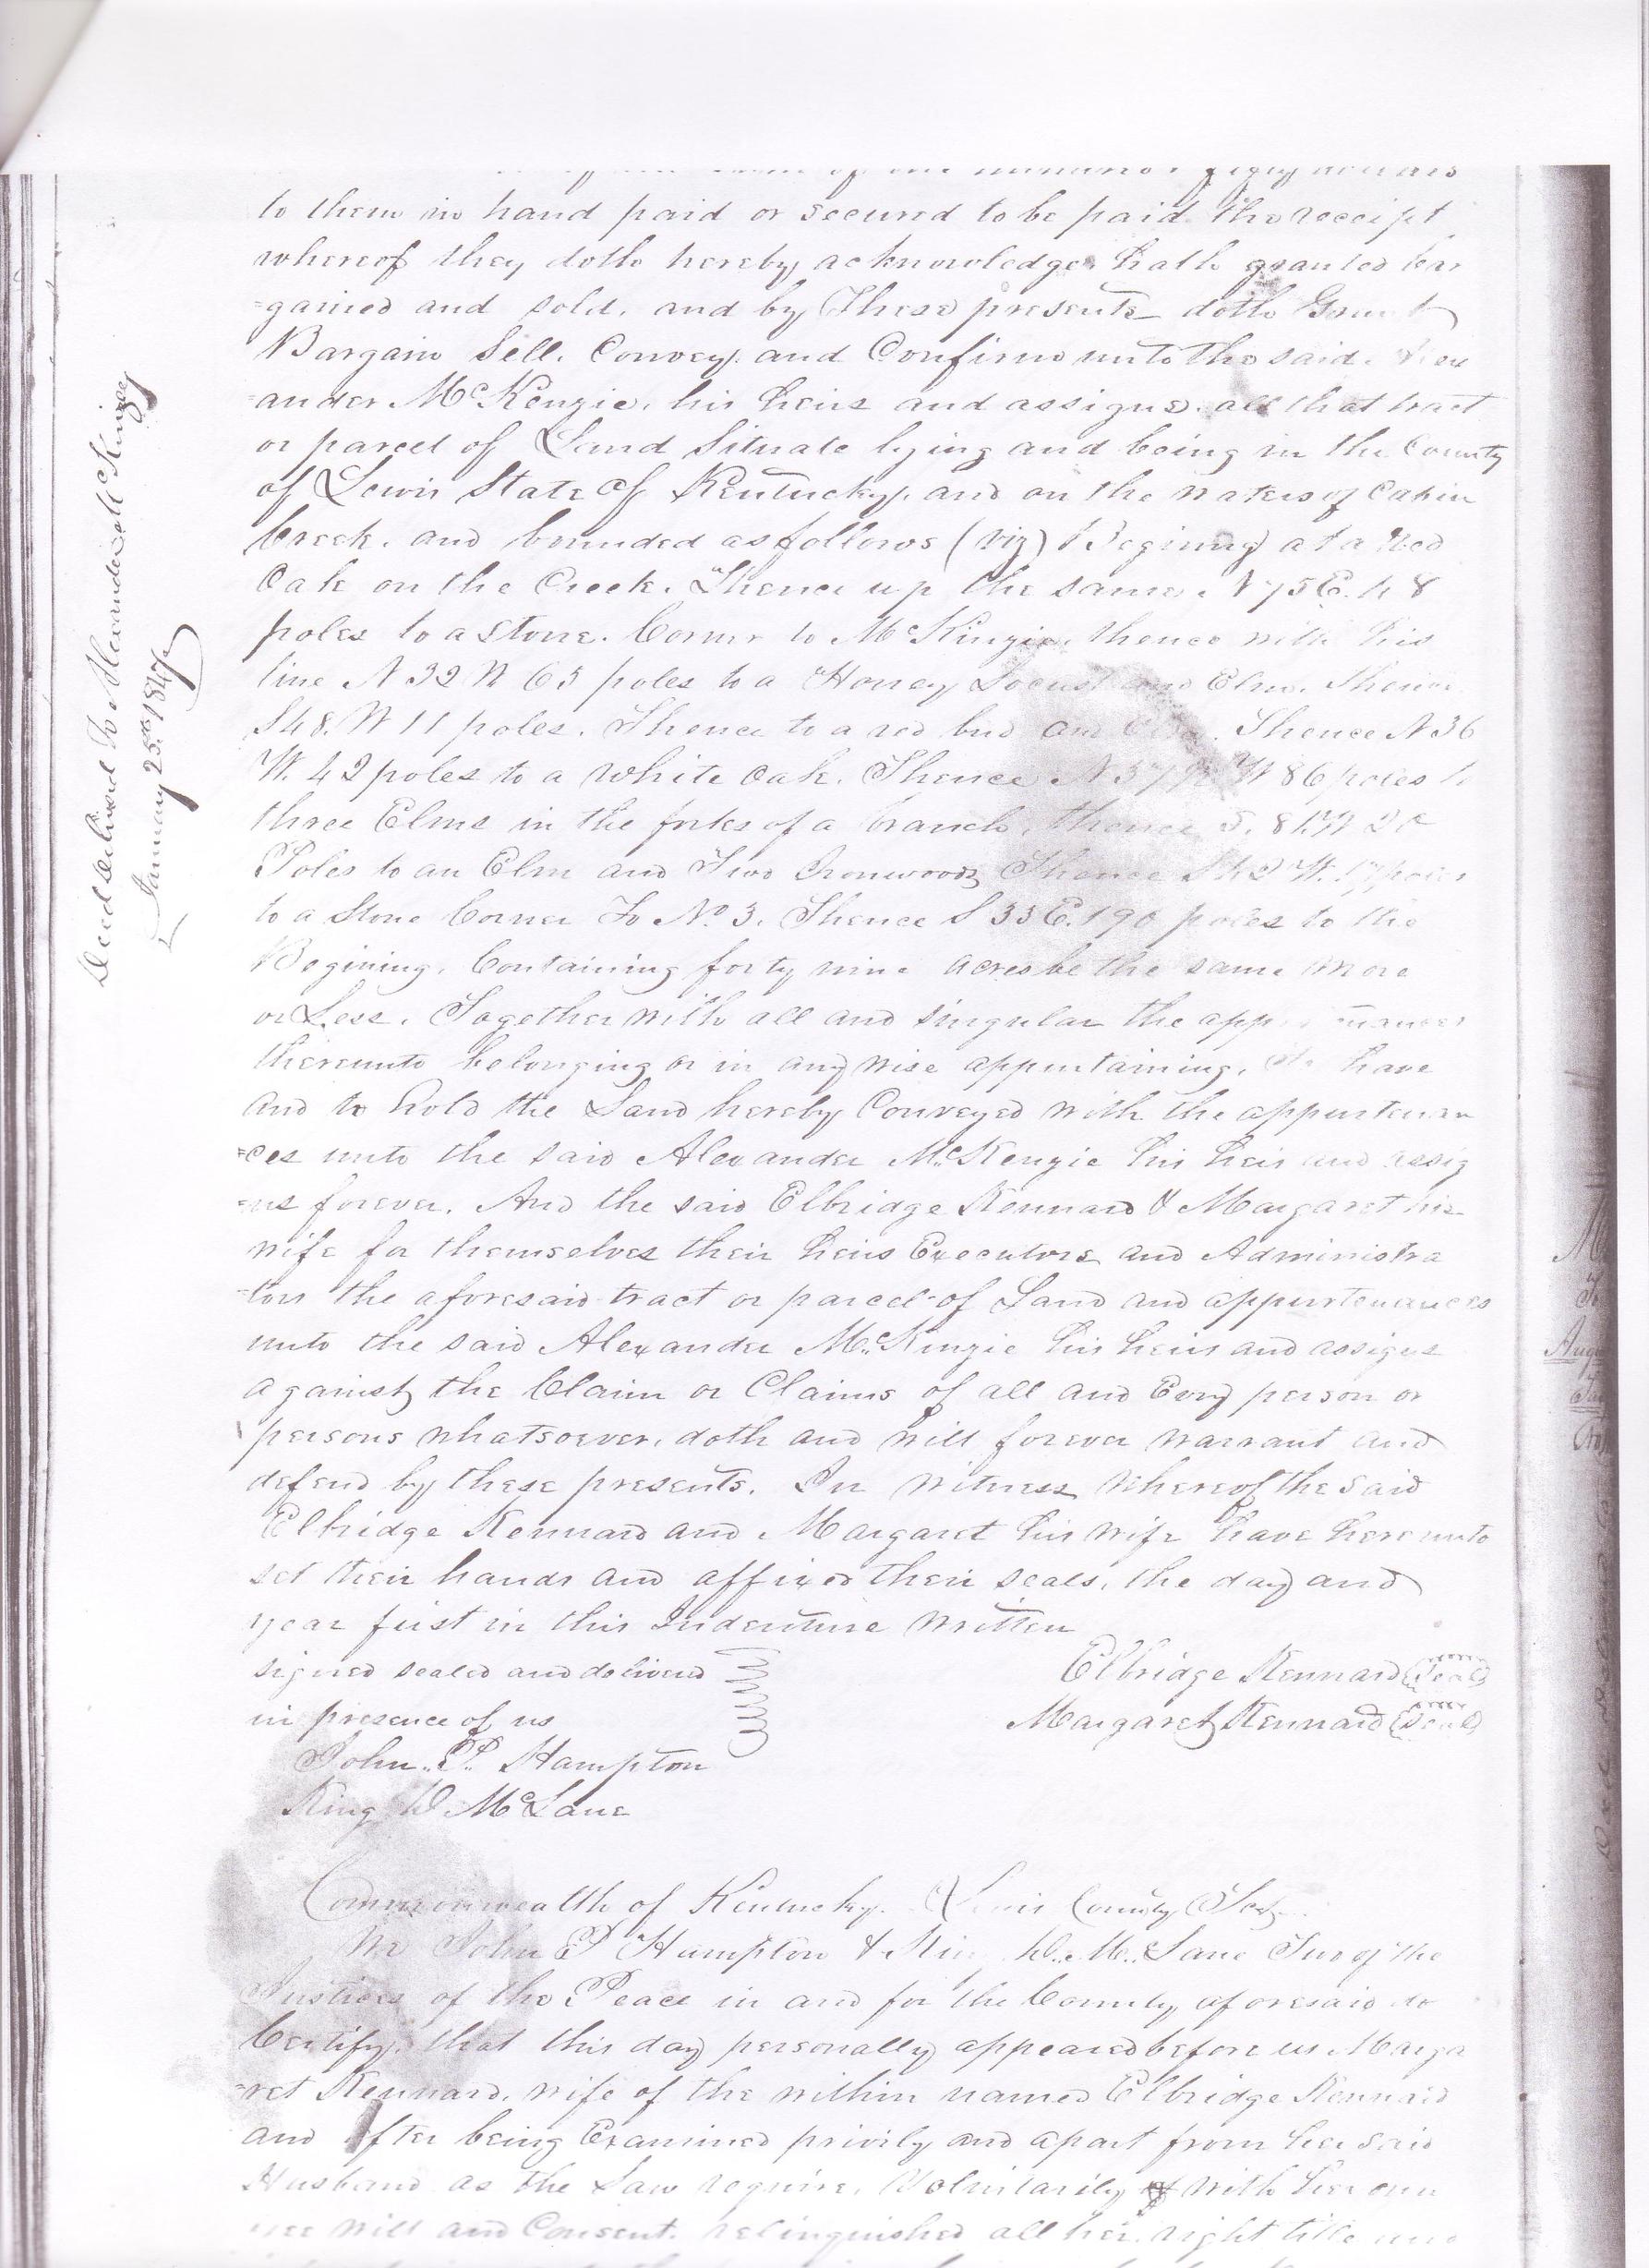 Deed delivered to Alexander McKinzee
January 25th 1847
to them in hand paid or secured to be paid the receipt
whereof they doth hereby acknowledge hath granted bar
=gained and sold, and by These presents doth Grant
Bargain Sell. Convey. and Confirm unto the said. Alex
=ander McKenzie, his heirs and assigns. all that tract
or parcel of Land Situate lying and being in the County
of Lewis State Of Kentucky, and on the waters of Cabin
Creek. and bounded as follows (viz) Begining at a Red
Oak on the Creek. Thence up the same. N 75 E. 48
poles to a stone. Corner to McKinzie, thence with his
line N 32 W 65 poles to a Honey Locust and Elm. Thence
S48. W 11 poles. Thence to a red bud and Elm. Thence N36
W. 42 poles to a White Oak. Thence N 37½ W 86 poles to
three Elms in the forks of a branch, thence S. 81. W
Poles to an Elm and Two Ironwoods Thence W. poles
to a Stone Corner To No. 3. Thence S 33 E. 190 poles to the
Begining. Containing forty nine acres be the same more
or Less. Together with all and singular the
thereunto belonging or in any wise appertaining, To have
and to hold the Land hereby Conveyed with the appurtenan
=ces unto the said Alexander McKenzie his heirs and assig
=ns forever. And the said Elbridge Kennard & Margaret his
wife for themselves their heirs Executors and Administra
=tors the aforesaid tract or parcel of Land and appurtenances
unto the said Alexander McKinzie his heirs and assigns
against the Claim or Claims of all and Every person or
persons whatsoever, doth and will forever warrant and
defend by these presents. In witness whereof the said
Elbridge Kennard and Margaret his wife have hereunto
set their hands and affixed their seals, the day and
year first in this Indenture written
signed sealed and delivered
Elbridge Kennard (Seal)
in presence of us
Margaret Kennard (Seal)
John. P. Hampton
King D McLane
Commonwealth of Kentucky. Lewis County Sct.
We John P Hampton & King D. McLane Two of the
Justices of the Peace in and for the County aforesaid do
Certify. that this day personally appeared before us Marga
=ret Kennard, wife of the within named Elbridge Kennard
and after being Examined privily and apart from her said
Husband as the Law require, Voluntarily with her own
free will and Consent. relinquished all her right title and